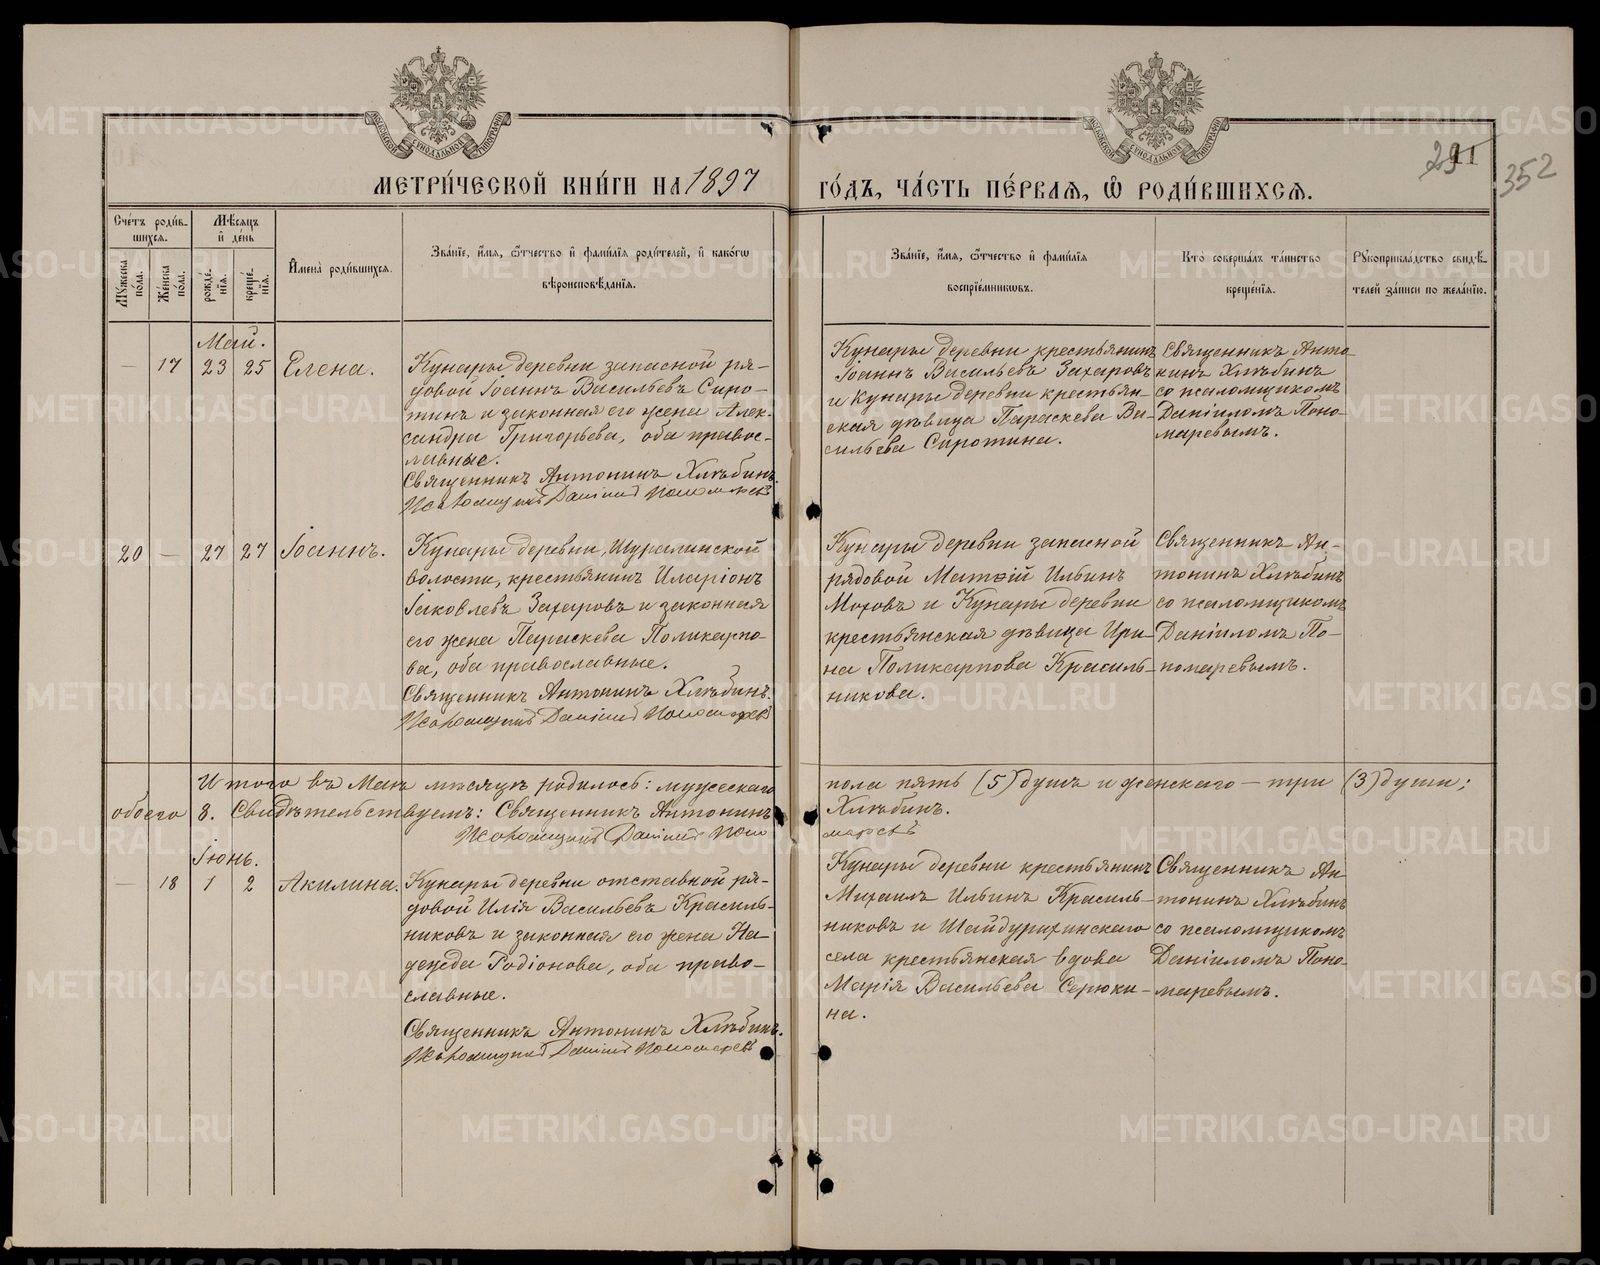 МОСКОВСКОЙ СѴНОДАЛЬНОЙ ТИПОГРАФІИ
МОСКОВСКОЙ СѴНОДАЛЬНОЙ ТИПОГРАФІИ
11
29
352
МЕТРИ́ЧЕСКОЙ КНИ́ГИ НА 1897
ГО́ДЪ, ЧА́СТЬ ПЕ́РВАѦ, Ѽ РОДИ́ВШИХСѦ.
Сче́тъ роди́в-
шихсѧ.
Мѣ́сѧцъ
и҆ де́нь
Мꙋ́жеска
по́ла.
Же́нска
по́ла.
рожде́-
нїѧ.
креще́-
нїѧ.
И҆мена̀ роди́вшихсѧ.
Зва́нїе, и҆́мѧ, ѻ҆́тчество и҆ фами́лїѧ роди́телей, и҆ како́гѡ
вѣроисповѣ́данїѧ.
Зва́нїе, и҆́мѧ, ѻ҆́тчество и҆ фами́лїѧ
воспрїе́мникѡвъ.
Кто̀ соверша́лъ та́инство
креще́нїѧ.
Рꙋкоприкла́дство свидѣ́-
телей за́писи по жела́нїю.
Май.
— 17 23 25 Елена.
Кунары деревни запасной ря-
довой Іоаннъ Васильевъ Сиро-
тинъ и законная его жена Алек-
сандра Григорьева, оба правос-
лавные.
Священникъ Антонинъ Хлѣбинъ.
Псаломщикъ Даніилъ Пономаревъ
Кунары деревни крестьянинъ
Іоаннъ Васильевъ Захаровъ
и Кунары деревни крестьян-
ская дѣвица Параскева Ва-
сильева Сиротина.
Священникъ Анто-
нинъ Хлѣбинъ
со псаломщикомъ
Даніиломъ Поно-
маревымъ.
20 — 27 27 Іоаннъ.
Кунары деревни, Шуралинской
волости, крестьянинъ Иларіонъ
Іаковлевъ Захаровъ и законная
его жена Параскева Поликарпо-
ва, оба православные.
Священникъ Антонинъ Хлѣбинъ.
Псаломщикъ Даніилъ Пономаревъ
Кунары деревни запасной
рядовой Матѳій Ильинъ
Моховъ и Кунары деревни
крестьянская дѣвица Ири-
на Поликарпова Красиль-
никова.
Священникъ Ан-
тонинъ Хлѣбинъ
со псаломщикомъ
Даніиломъ По-
номаревымъ.
Итого въ Маѣ мѣсяцѣ родилось: мужескаго
пола пять (5) душъ и женскаго — три (3) души;
обоего 8. Свидѣтельствуемъ: Священникъ Антонинъ
Хлѣбинъ.
Псаломщикъ Даніилъ Поно
маревъ
Іюнь.
— 18 1 2 Акилина.
Кунары деревни отставной ря-
довой Илія Васильевъ Красиль-
никовъ и законная его жена На-
дежда Родіонова, оба право-
славные.
Священникъ Антонинъ Хлѣбинъ.
Псаломщикъ Даніилъ Пономаревъ
Кунары деревни крестьянинъ
Михаилъ Ильинъ Красиль-
никовъ и Шайдурихинскаго
села крестьянская вдова
Марія Васильева Серюки-
на.
Священникъ Ан
тонинъ Хлѣбинъ
со псаломщикомъ
Даніиломъ Поно-
маревымъ.
METRIKI.GASO-URAL.RU